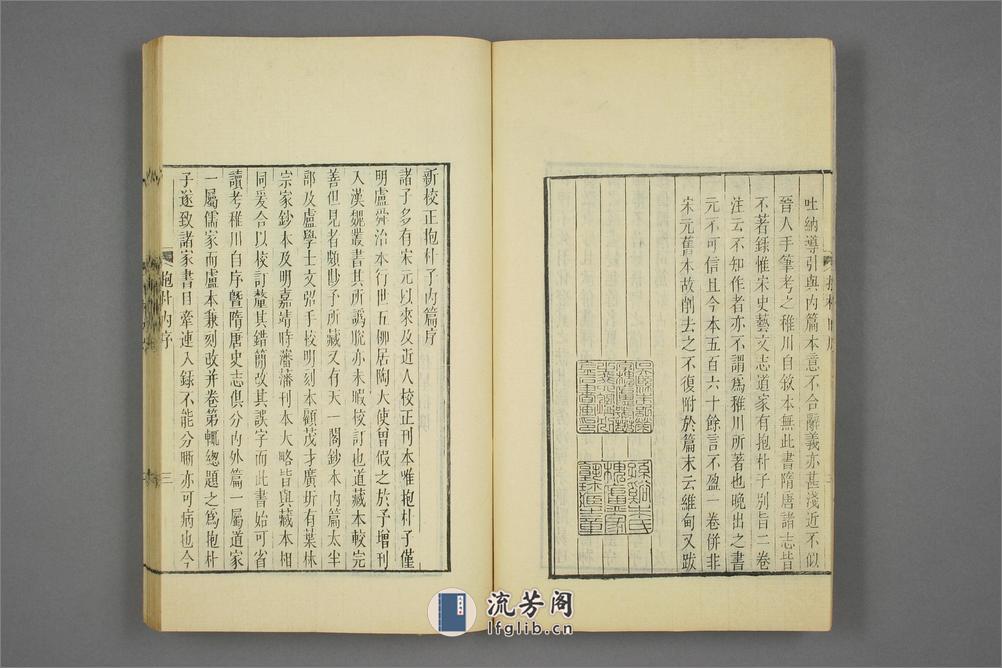 吐納導引與內篇本意不合辭義亦甚淺近不似
晉人手筆考之稚川自敘本無此書隋唐諸志皆
不著錄惟宋史藝文志道家有抱朴子別旨二卷
注云不知作者亦不謂爲稚川所著也晚出之書
元不可信且今本五百六十餘言不盈一卷併非
宋元舊本故削去之不復附於篇末云維甸又跋
新校正抱朴子內篇序
諸子多有宋元以來及近人校正刊本唯抱朴子僅
明盧舜治本行世五柳居陶大使曾假之於予增刊
入漢魏叢書其所譌脫亦未暇校訂也道藏本較完
善但見者頗尠予所藏又有天一閣鈔本內篇太半
部及盧學士文弨手校明刻本顧茂才廣圻有葉林
宗家鈔本及明嘉靖時瀋藩刊本大略皆與藏本相
同爰合以校訂釐其錯簡改其誤字而此書始可省
讀考稚川自序曁隋唐史志俱分內外篇一屬道家
一屬儒家而盧本兼刻改并卷第輒總題之爲抱朴
子遂致諸家書目牽連入錄不能分晰亦可病也今
抱朴內序
三
流芳阁
lfglib.cn